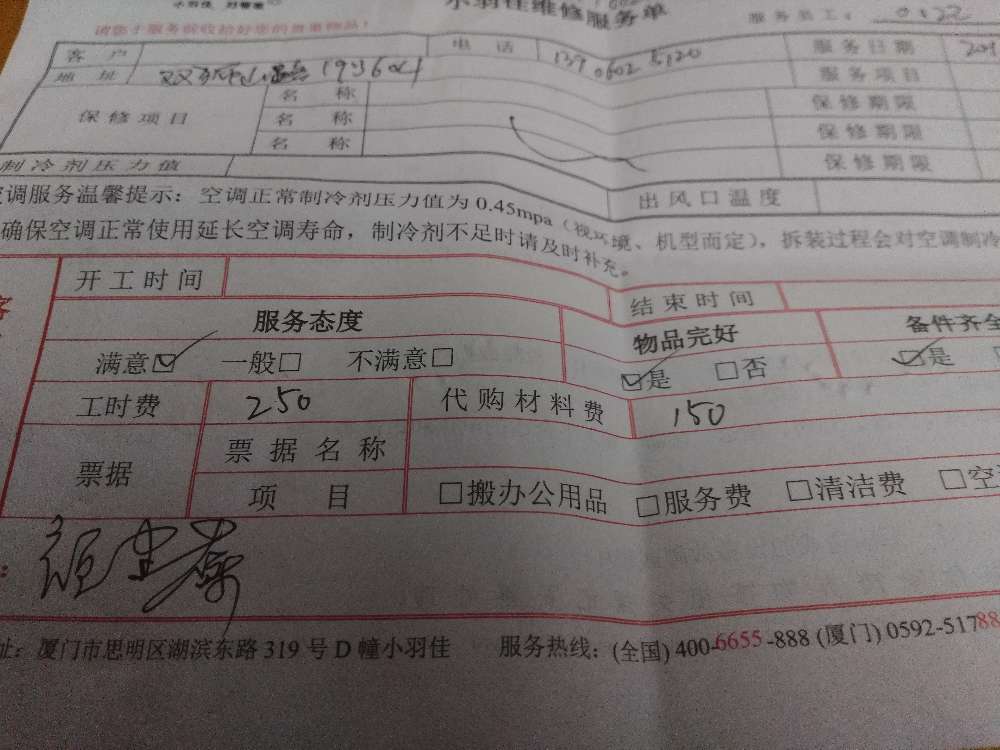 小羽佳维修服务单
服务员工: 0122
请您于服务前收拾好您的贵重物品!
客户 电话 服务日期
地址 服务项目
保修项目 名称 保修期限
名称 保修期限
名称 保修期限
制冷剂压力值 出风口温度
调服务温馨提示: 空调正常制冷剂压力值为 0.45mpa (视环境、机型而定), 拆装过程会对空调制冷
确保空调正常使用延长空调寿命, 制冷剂不足时请及时补充。
开工时间 结束时间
服务态度 物品完好 备件齐全
满意☑ 一般□ 不满意□ ☑是 □否 ☑是
工时费 250 代购材料费 150
票据 票据名称
项目 □搬办公用品 □服务费 □清洁费 □空
址: 厦门市思明区湖滨东路 319 号 D 幢小羽佳 服务热线: (全国) 400-6655-888 (厦门) 0592-51788